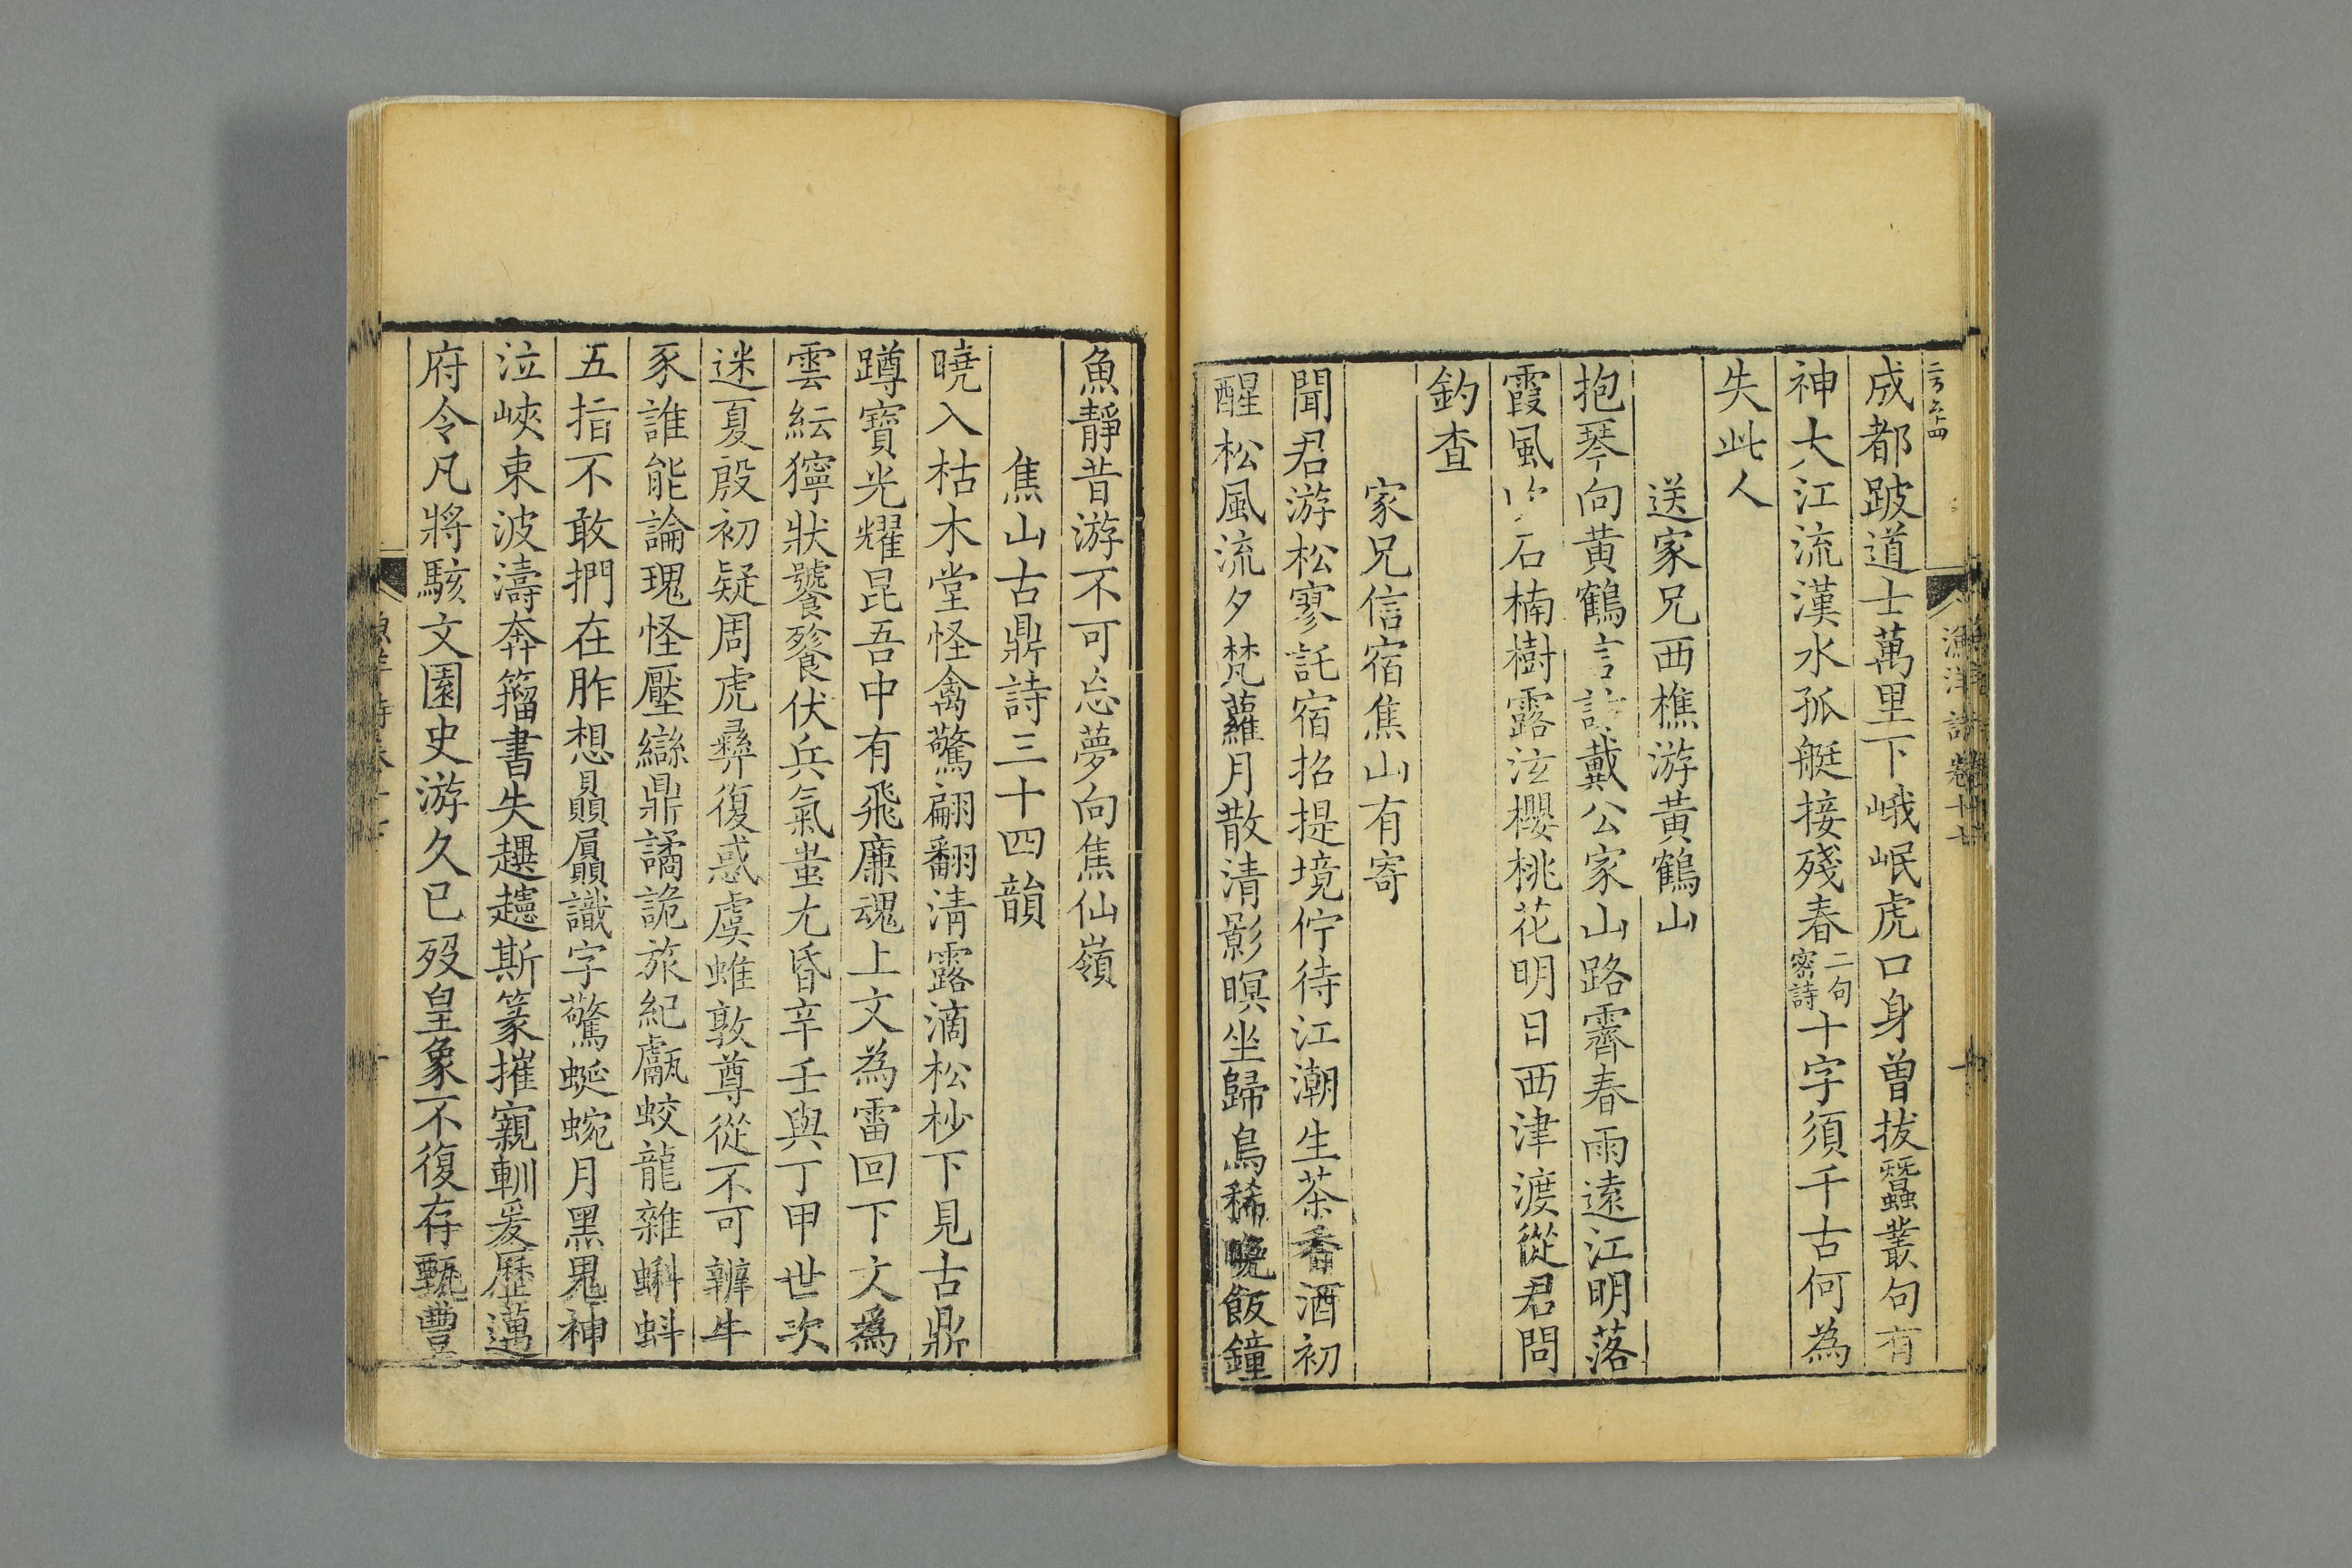 成都跛道士萬里下峨岷虎口身曾拔蠶叢句有
神大江流漢水孤艇接殘春二句密詩十字須千古何為
失此人
送家兄西樵游黃鶴山
抱琴向黃鶴言訪戴公家山路霽春雨遠江明落
霞風 石楠樹露泫櫻桃花明日西津渡從君問
釣查
家兄信宿焦山有寄
聞君游松寥託宿招提境佇待江潮生茶香酒初
醒松風流夕梵蘿月散清影暝坐歸烏稀晚飯鐘
魚靜昔游不可忘夢向焦仙嶺
焦山古鼎詩三十四韻
曉入枯木堂怪禽驚翩翻清露滴松杪下見古鼎
蹲寶光耀昆吾中有飛廉魂上文為雷回下文為
雲紜獰狀饕餮伏兵氣蚩尤昏辛壬與丁甲世次
迷夏殷初疑周虎彝復惑虞蜼敦尊從不可辨牛
豕誰能論瑰怪壓䜌鼎譎詭旅紀甗蛟龍雜蝌蚪
五指不敢捫在胙想贔屭識字驚蜒蜿月黑鬼神
泣峽束波濤奔籀書失趩趨斯篆摧寴軐爰歷邁
府令凡將駭文園史游久已歿皇象不復存甄豐
漁洋詩卷十七